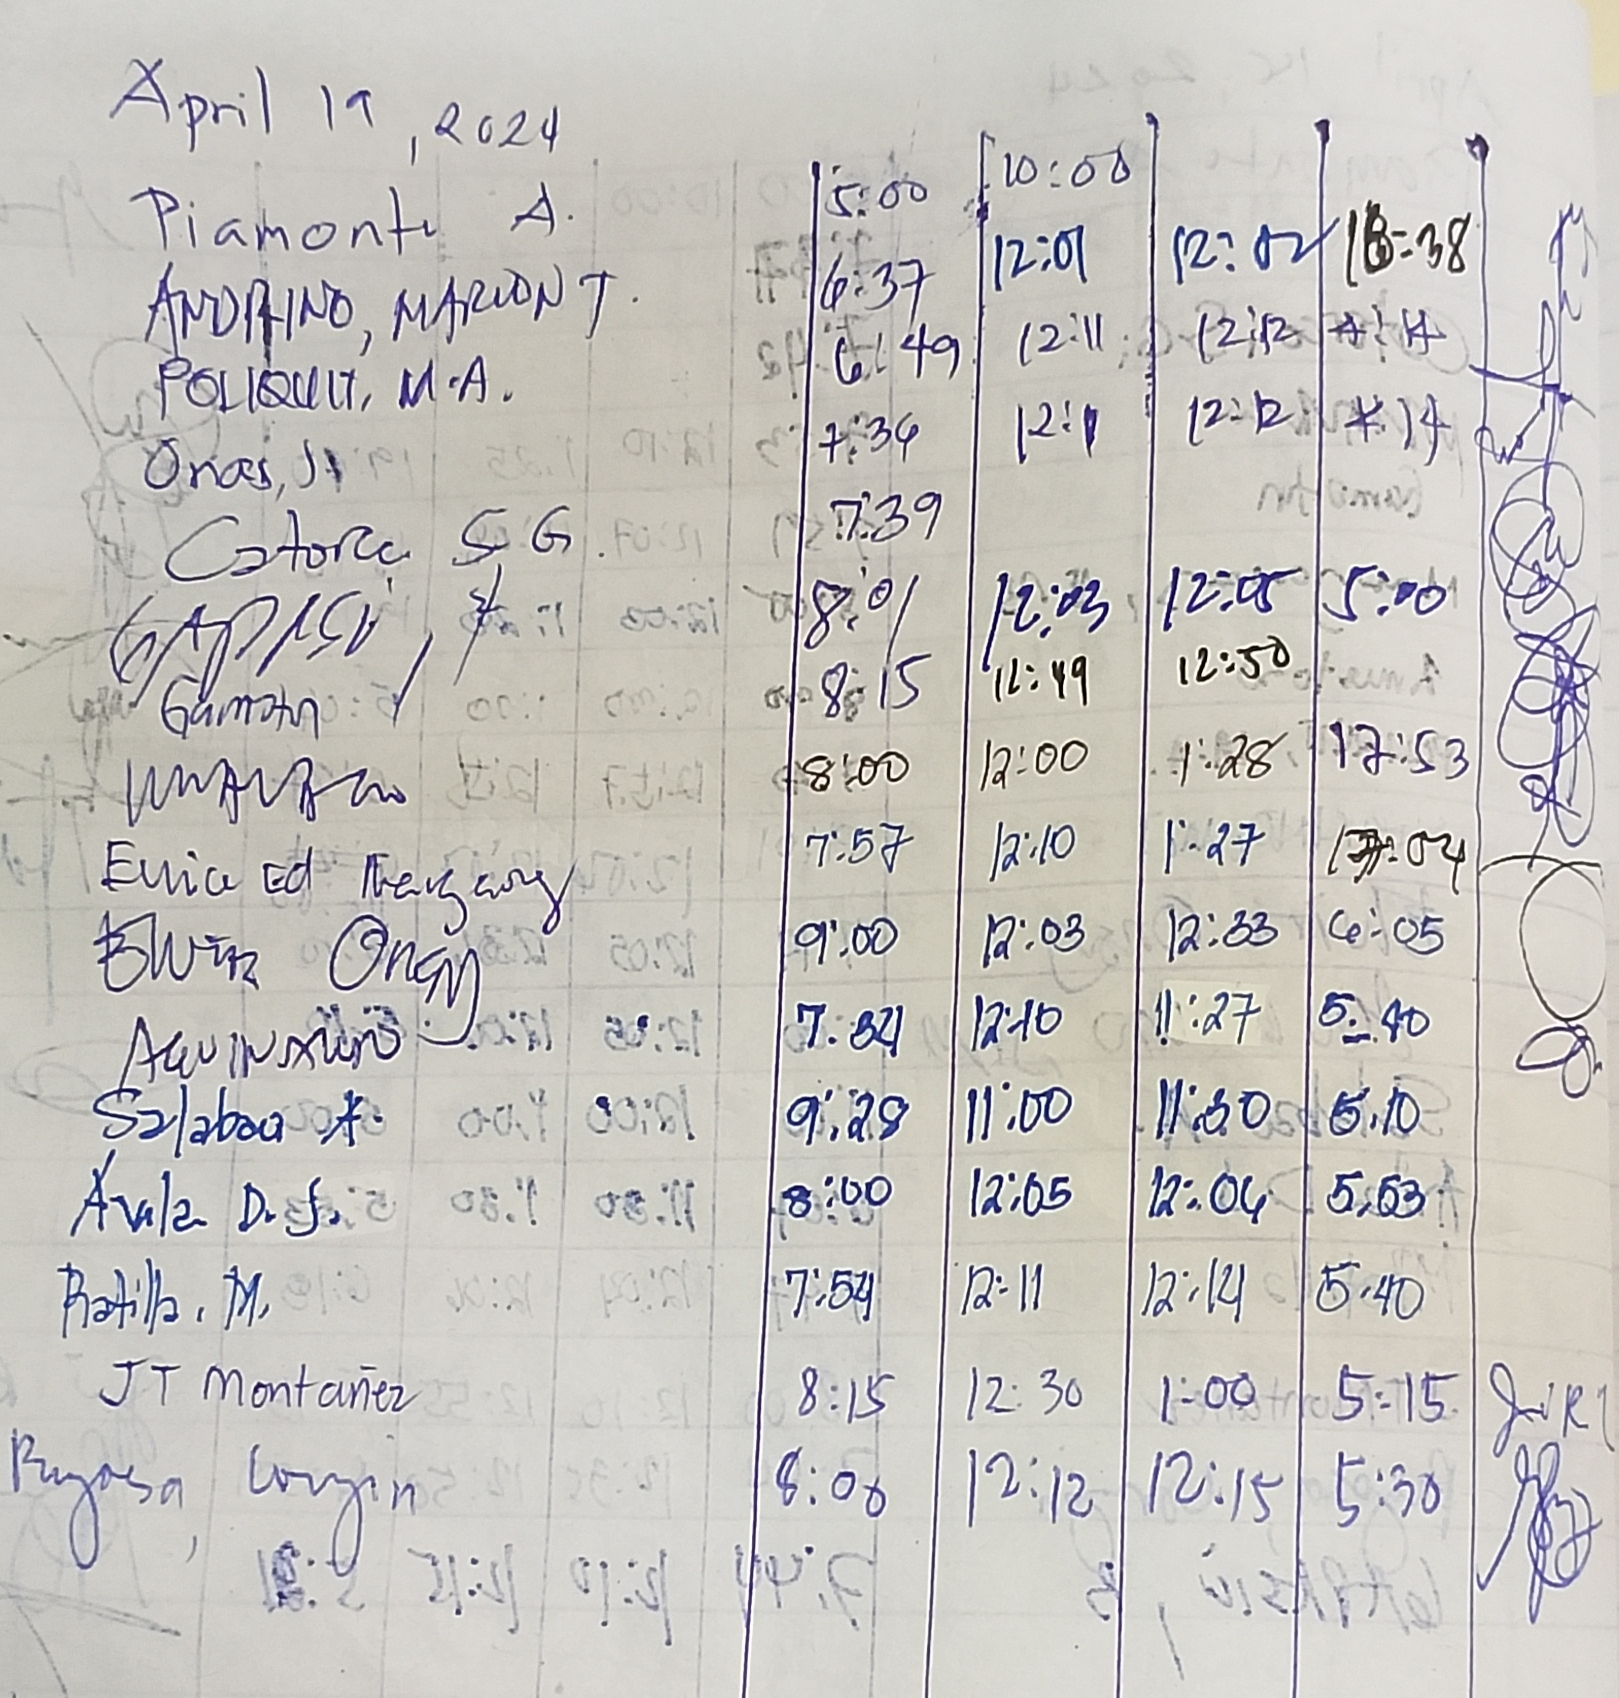 April 19, 2024
Piamonte A. 5:00 10:00
ANDRINO, MARION T. 6:37 12:01 12:02 18:38
POLIQUIT, M.A. 6:49 12:11 12:12 7:14
Onas, J. 7:36 12:11 12:12 7:14
Catorce, S G 7:39
8:01 12:03 12:05 5:00
Gamotin 8:15 12:49 12:50
8:00 12:00 1:28 17:53
Ed 7:57 12:10 1:27 17:04
Elwin Ongy 9:00 12:03 12:33 6:05
7:34 12:10 11:27 5:40
Salabao A. 9:28 11:00 11:30 5:10
Avila D. J. 8:00 12:05 12:06 5:53
Ratilla, M. 7:54 12:11 12:14 5:40
JT Montañez 8:15 12:30 1:00 5:15
8:00 12:12 12:15 5:30